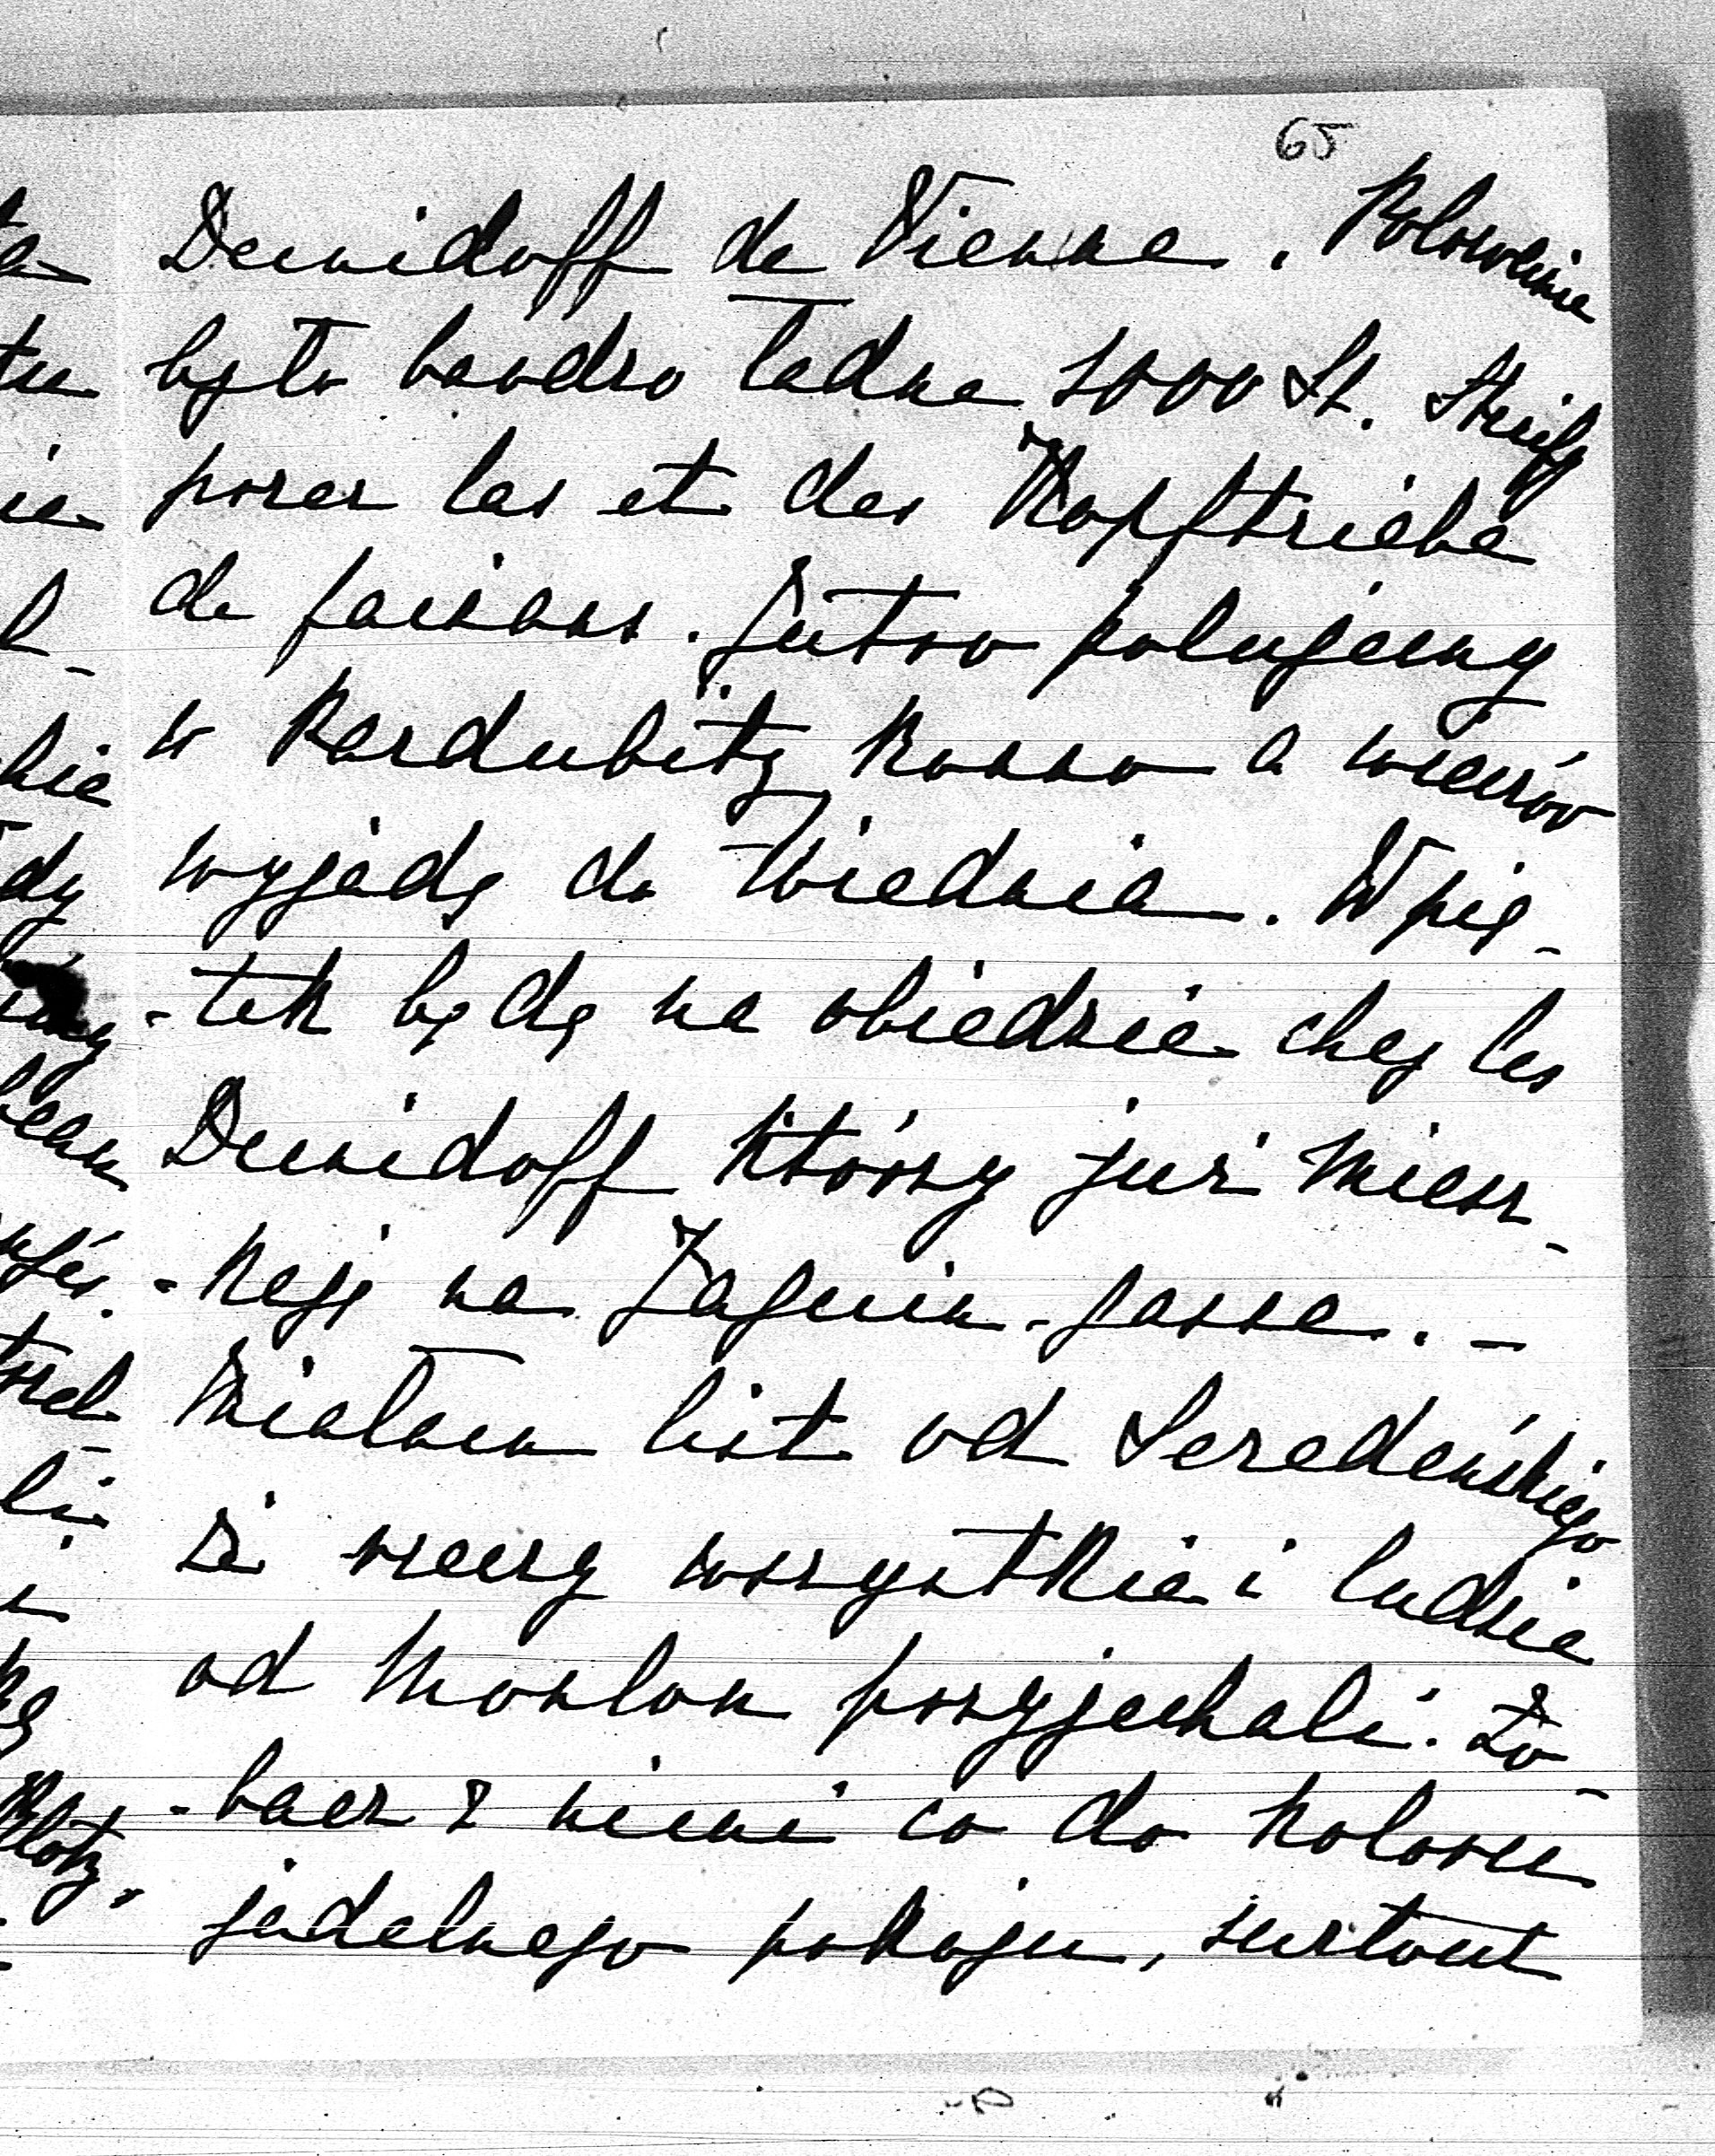 65
Demidoff de Vienne. Polowanie
było bardzo ładne 1000 St. Streify
przez las et des Kopftriebe
de faisans. Jutro polujemy
w Pardubitz konno a wieczór
wyjadę do Wiednia. W pią-
-tek będę na obiedzie chez les
Demidoff którzy już miesz-
-kają na Jaquin-gasse. –
Miałam list od Seredeńskiego
że rzeczy wszystkie i ludzie
od przyjechali. Zo-
-bacz z niemi co do koloru
jadalnego pokoju, surtout